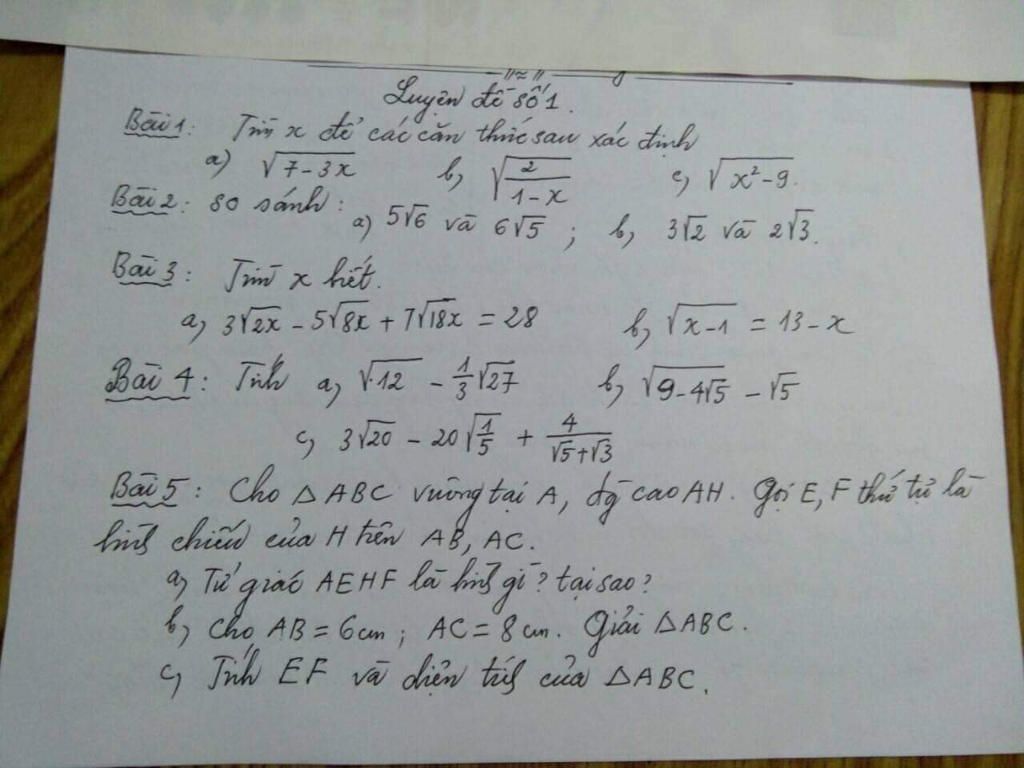 Luyện đề số 1.
Bài 1: Tìm x để các căn thức sau xác định
a) √(7-3x) b, √(2/(1-x)) c, √(x²-9).
Bài 2: so sánh:
a) 5√6 và 6√5 ; b, 3√2 và 2√3.
Bài 3: Tìm x biết.
a, 3√2x - 5√8x + 7√18x = 28 b, √(x-1) = 13-x
Bài 4: Tính a, √12 - 1/3√27 b, √(9-4√5) - √5
c, 3√20 - 20√(1/5) + 4/(√5+√3)
Bài 5: Cho △ABC vuông tại A, đg cao AH. Gọi E, F thứ tự là
hình chiếu của H trên AB, AC.
a, Tứ giác AEHF là hình gì? tại sao?
b, Cho AB = 6cm; AC = 8cm. Giải △ABC.
c, Tính EF và diện tích của △ABC.